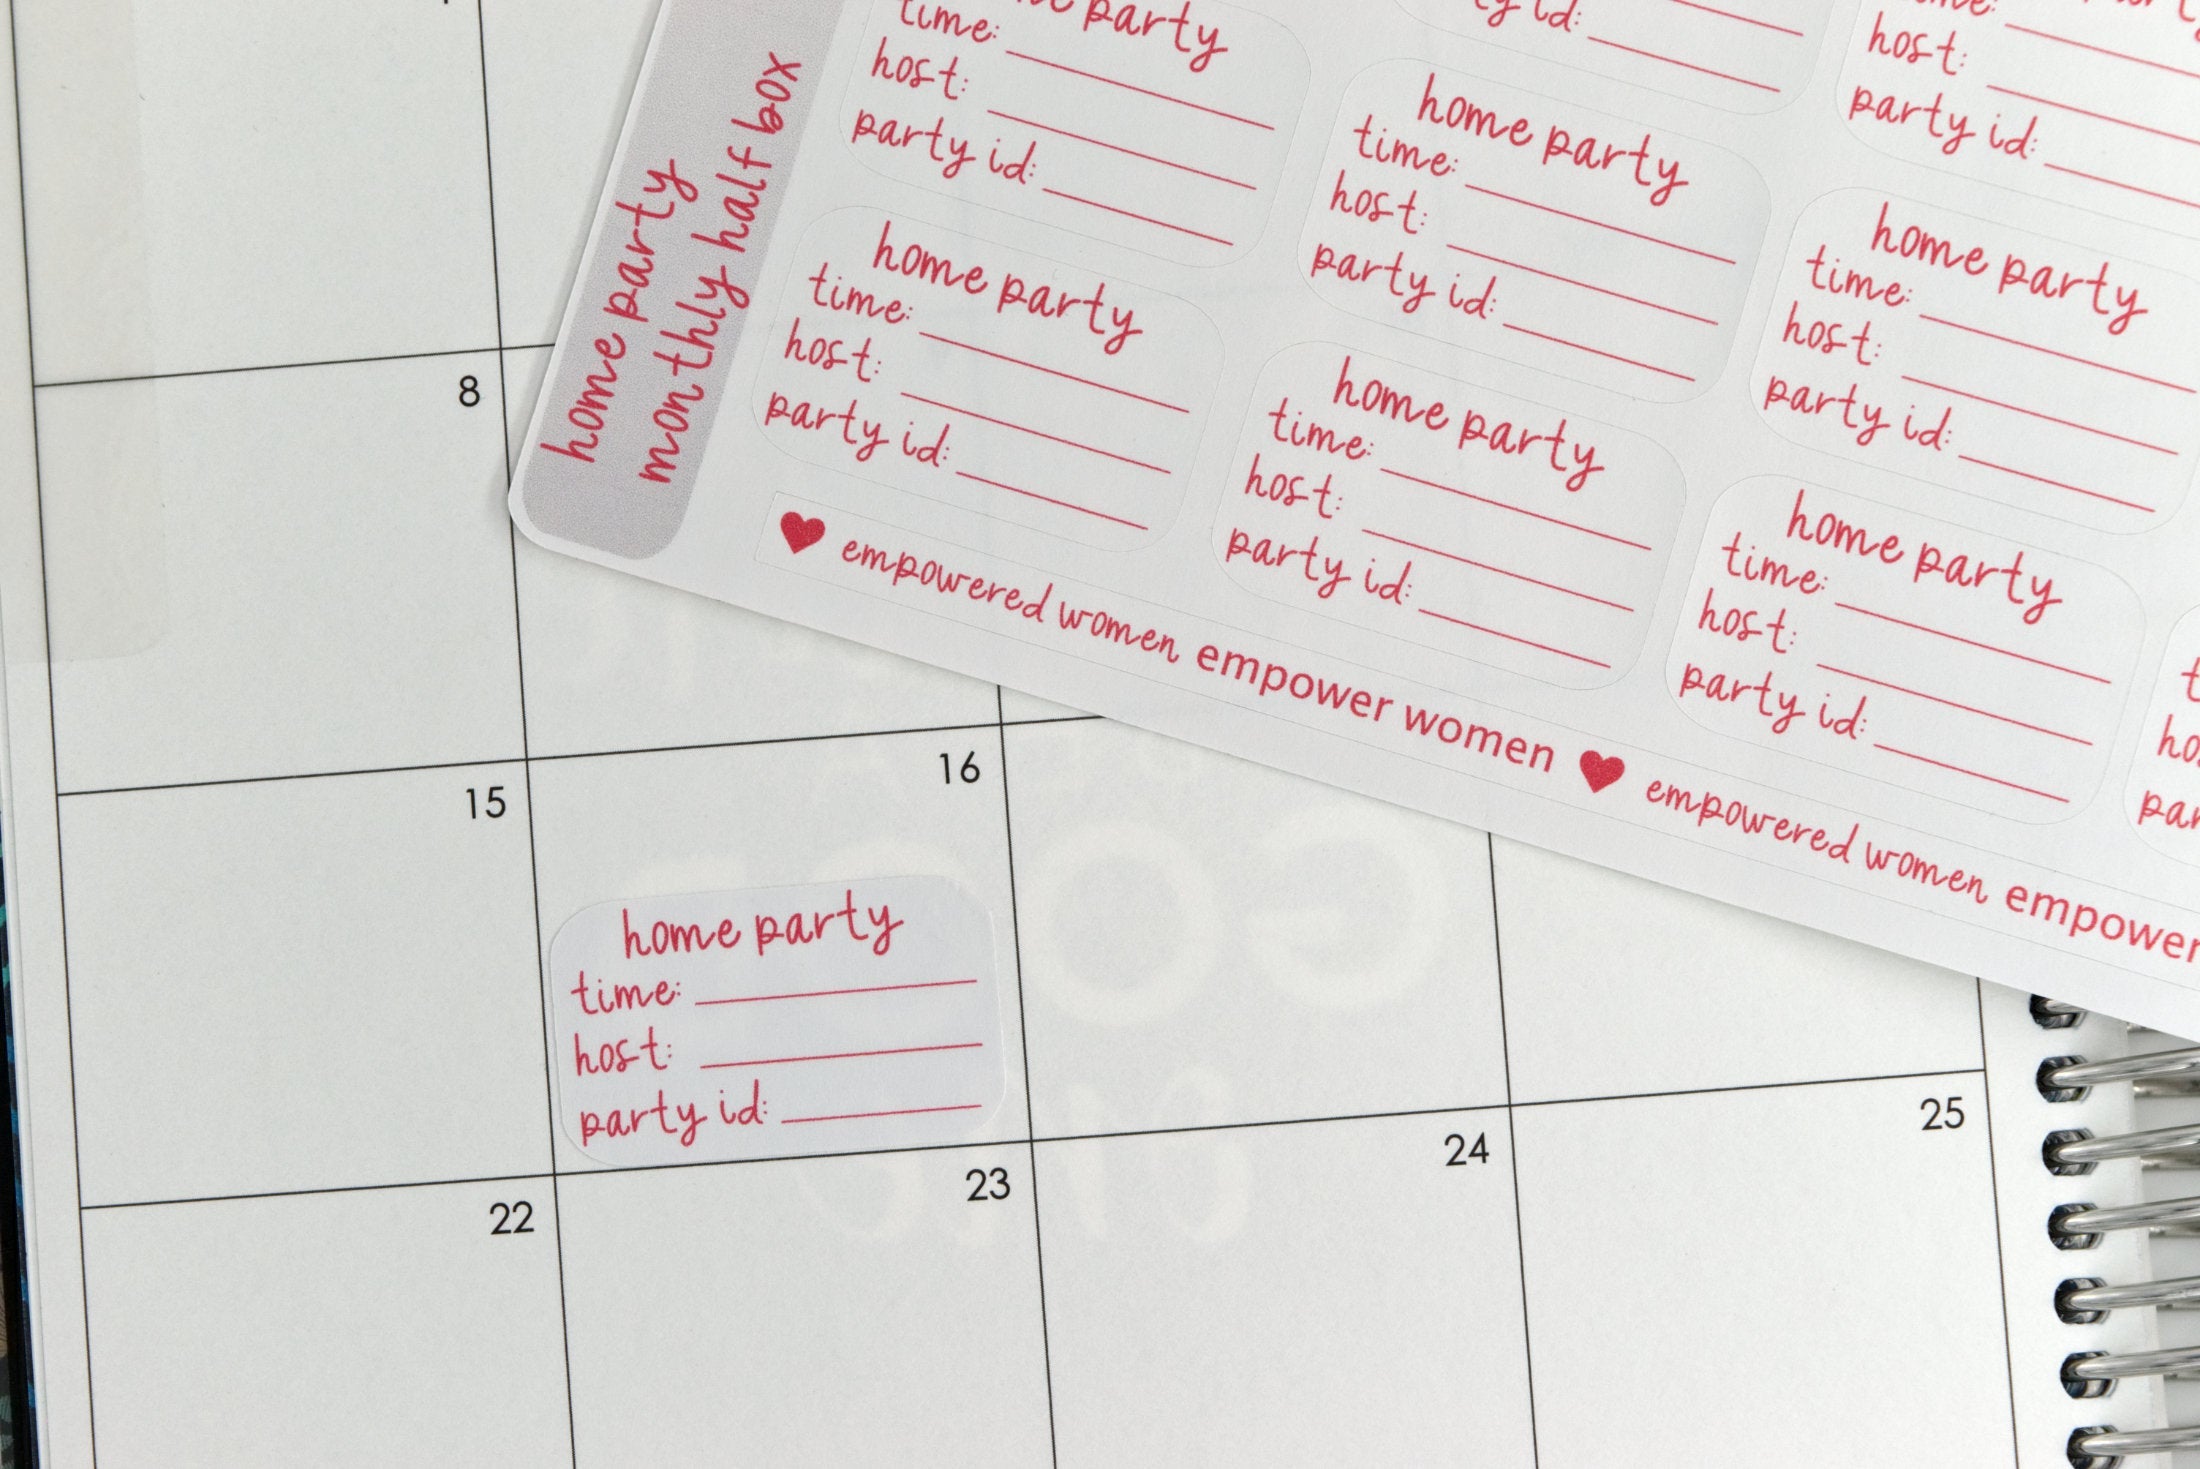 home party
monthly half box
party
time:
host:
party id:
home party
time:
host:
party id:
party id:
home party
time:
host:
party id:
home party
time:
host:
party id:
host:
party id:
home party
time:
host:
party id:
home party
time:
host:
party id:
♥ empowered women empower women ♥ empowered women empower
8
15
16
home party
time:
host:
party id:
22
23
24
25